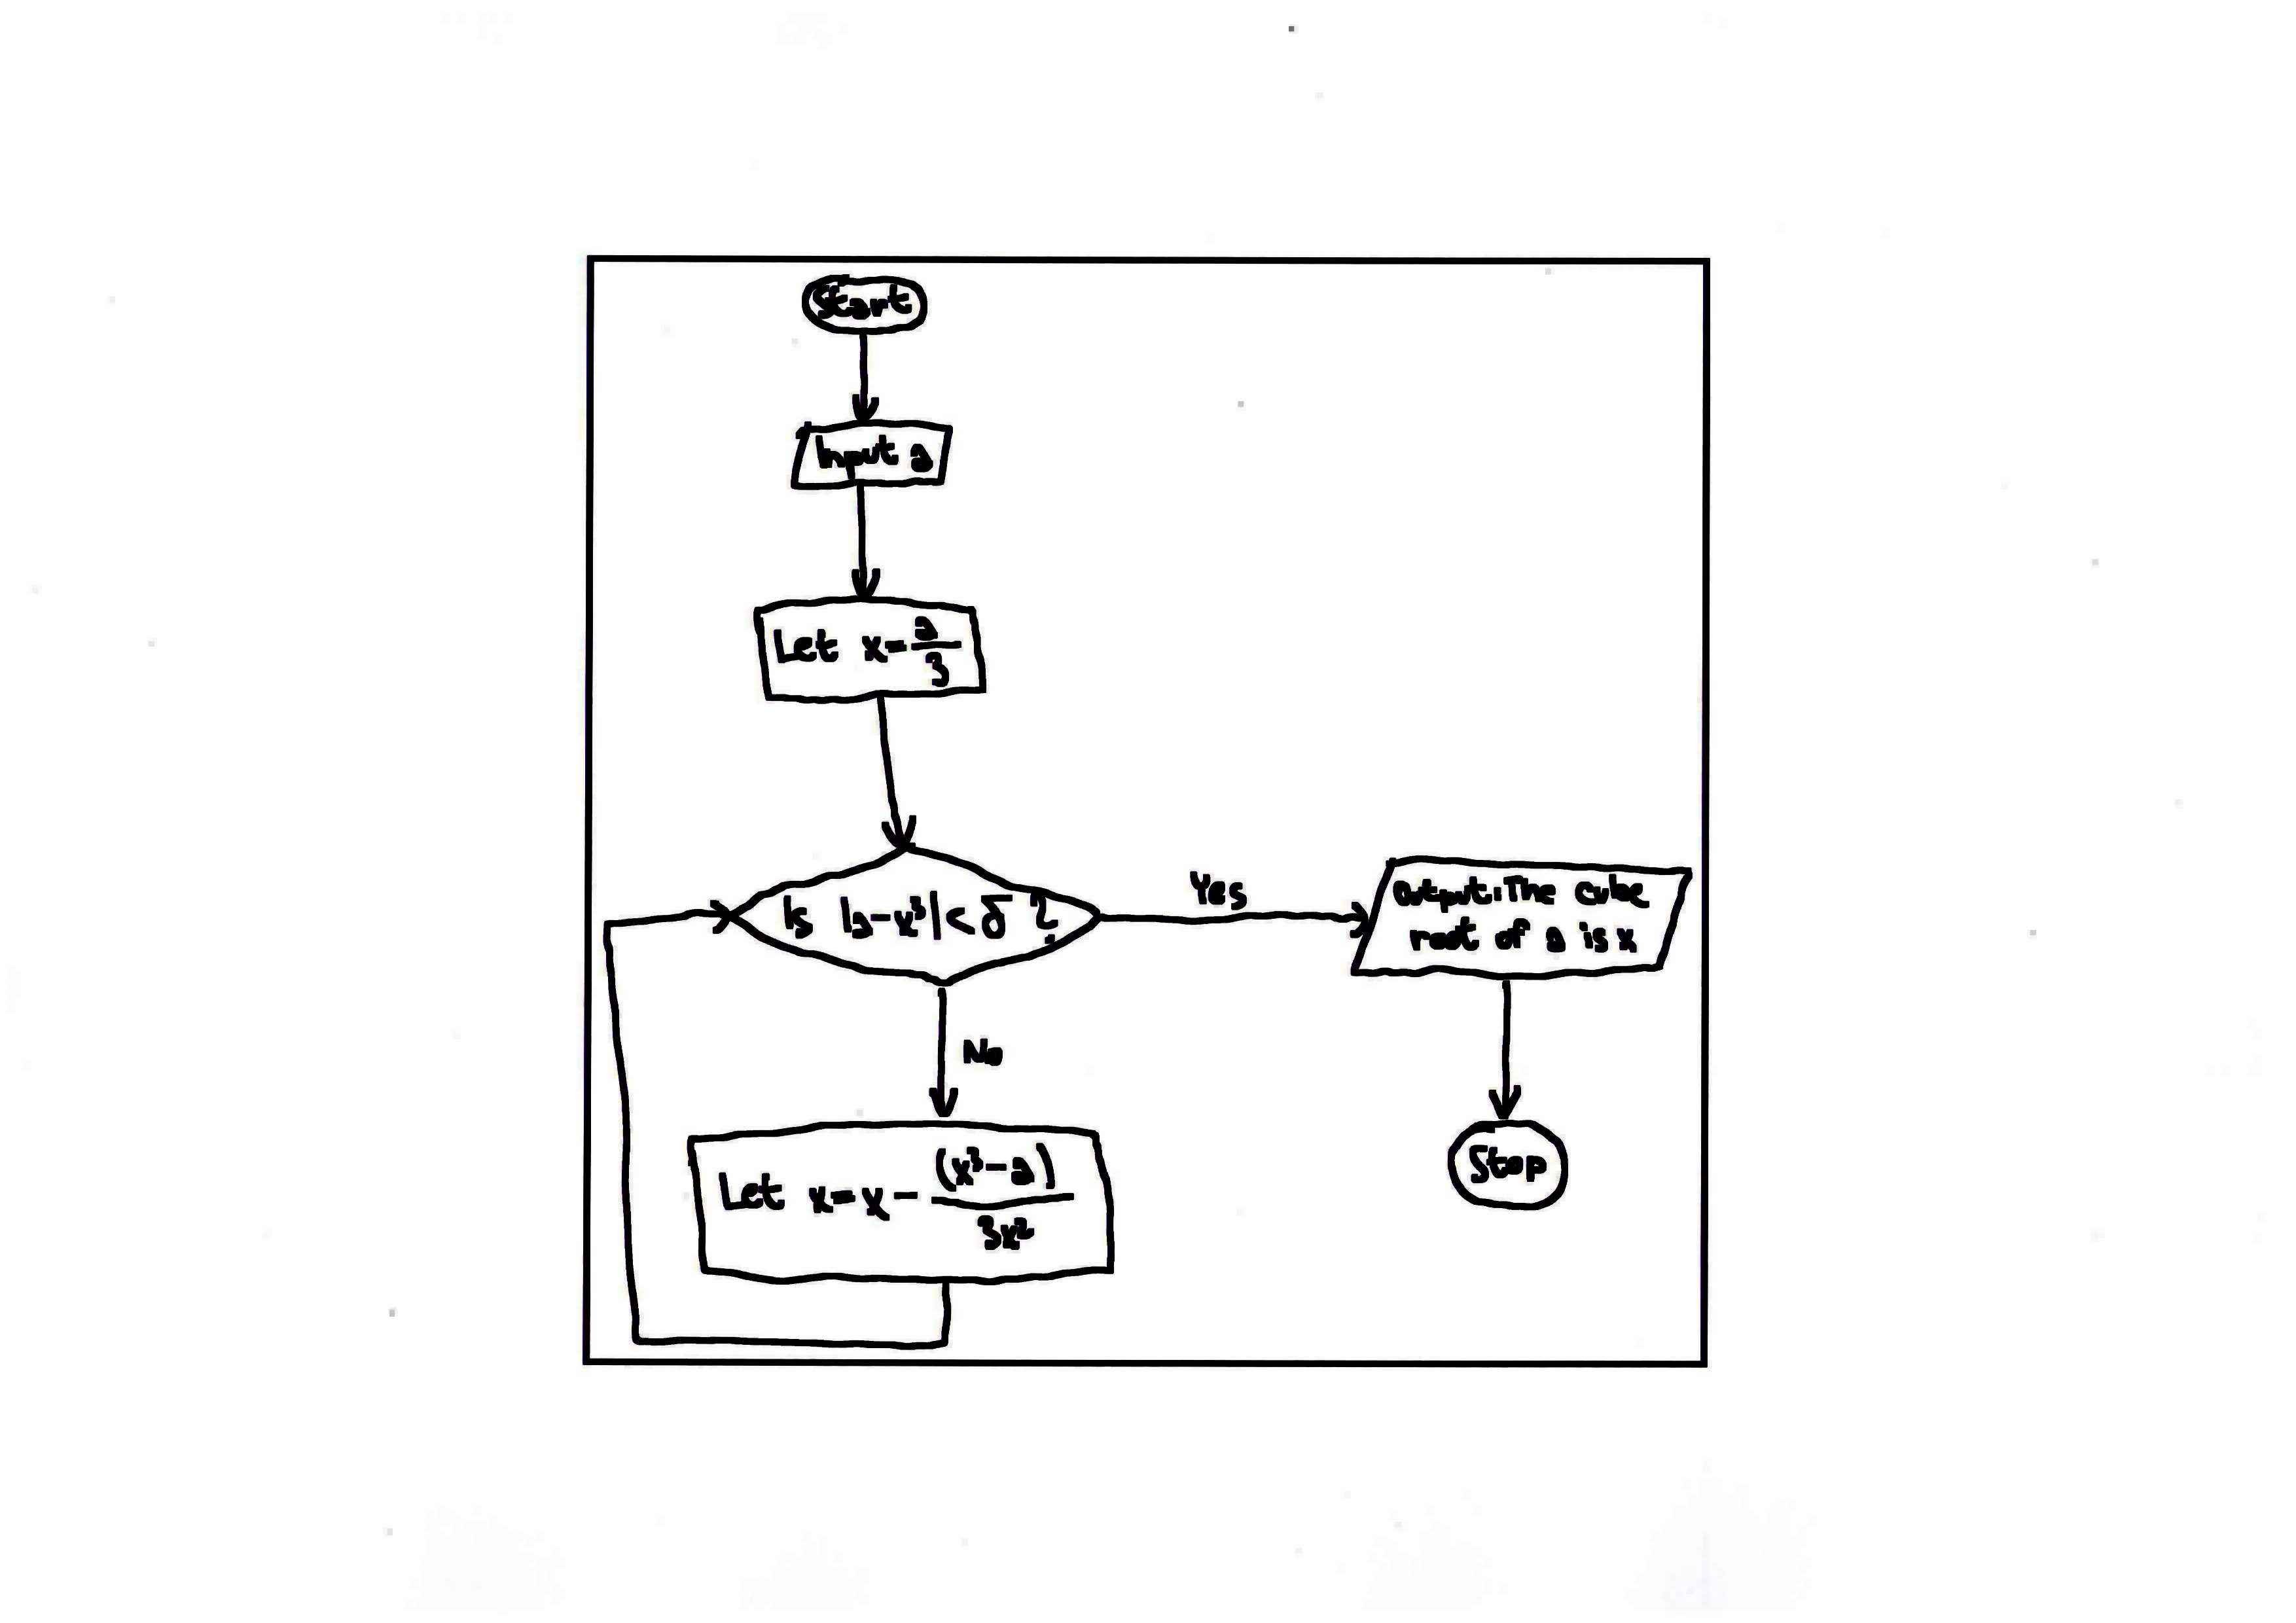 Start
Input a
Let x=a/3
Is |a-x³|<δ ?
Yes
Output: The cube
root of a is x
No
Let x=x-(x³-a)/3x²
Stop